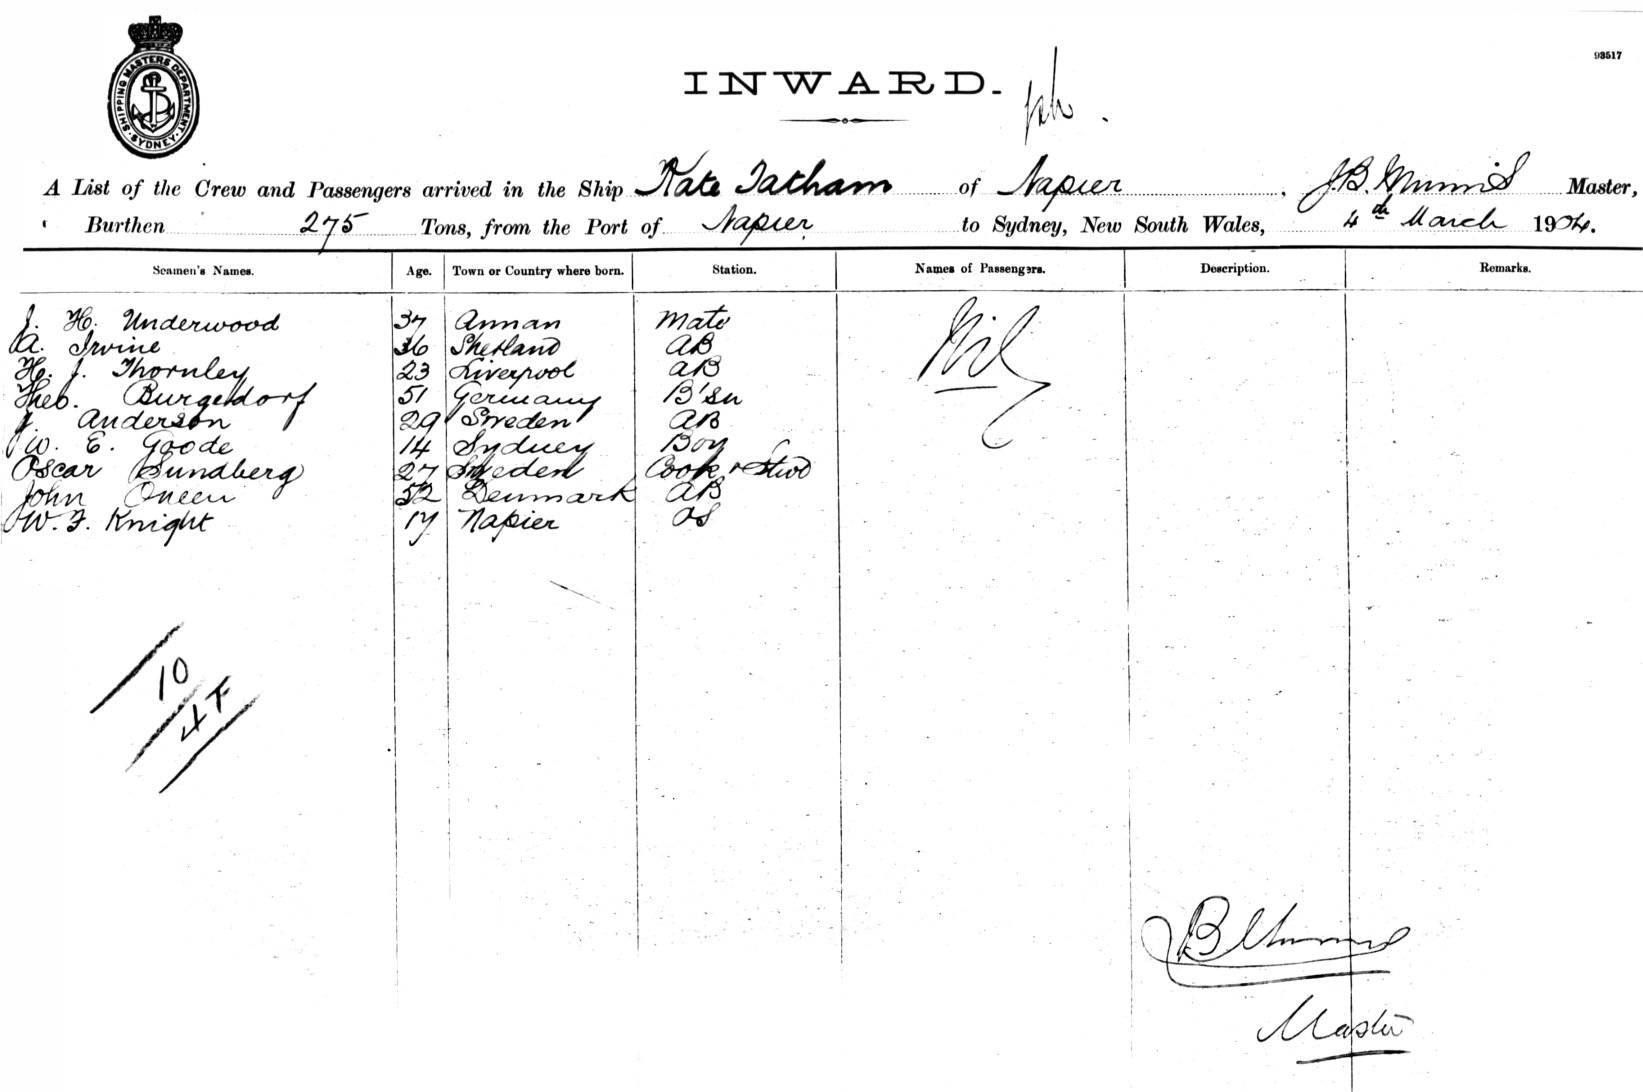 SHIPPING MASTERS DEPARTMENT. SYDNEY.
93517
INWARD.
A List of the Crew and Passengers arrived in the Ship Kate Tatham of Napier, J.B. Master,
Burthen 275 Tons, from the Port of Napier to Sydney, New South Wales, 4th March 1904.
Seamen's Names. Age. Town or Country where born. Station. Names of Passengers. Description. Remarks.
J. H. Underwood 37 Annan Mate Nil
A. Irvine 36 Shetland AB
H. J. Thornley 23 Liverpool AB
Theo. Burgeldorf 51 Germany B'sn
J. Anderson 29 Sweden AB
W. E. Goode 14 Sydney Boy
Oscar Sundberg 27 Sweden Cook & Stwd
John 52 Denmark AB
W. F. Knight 17 Napier OS
10
4 F
JB
Master